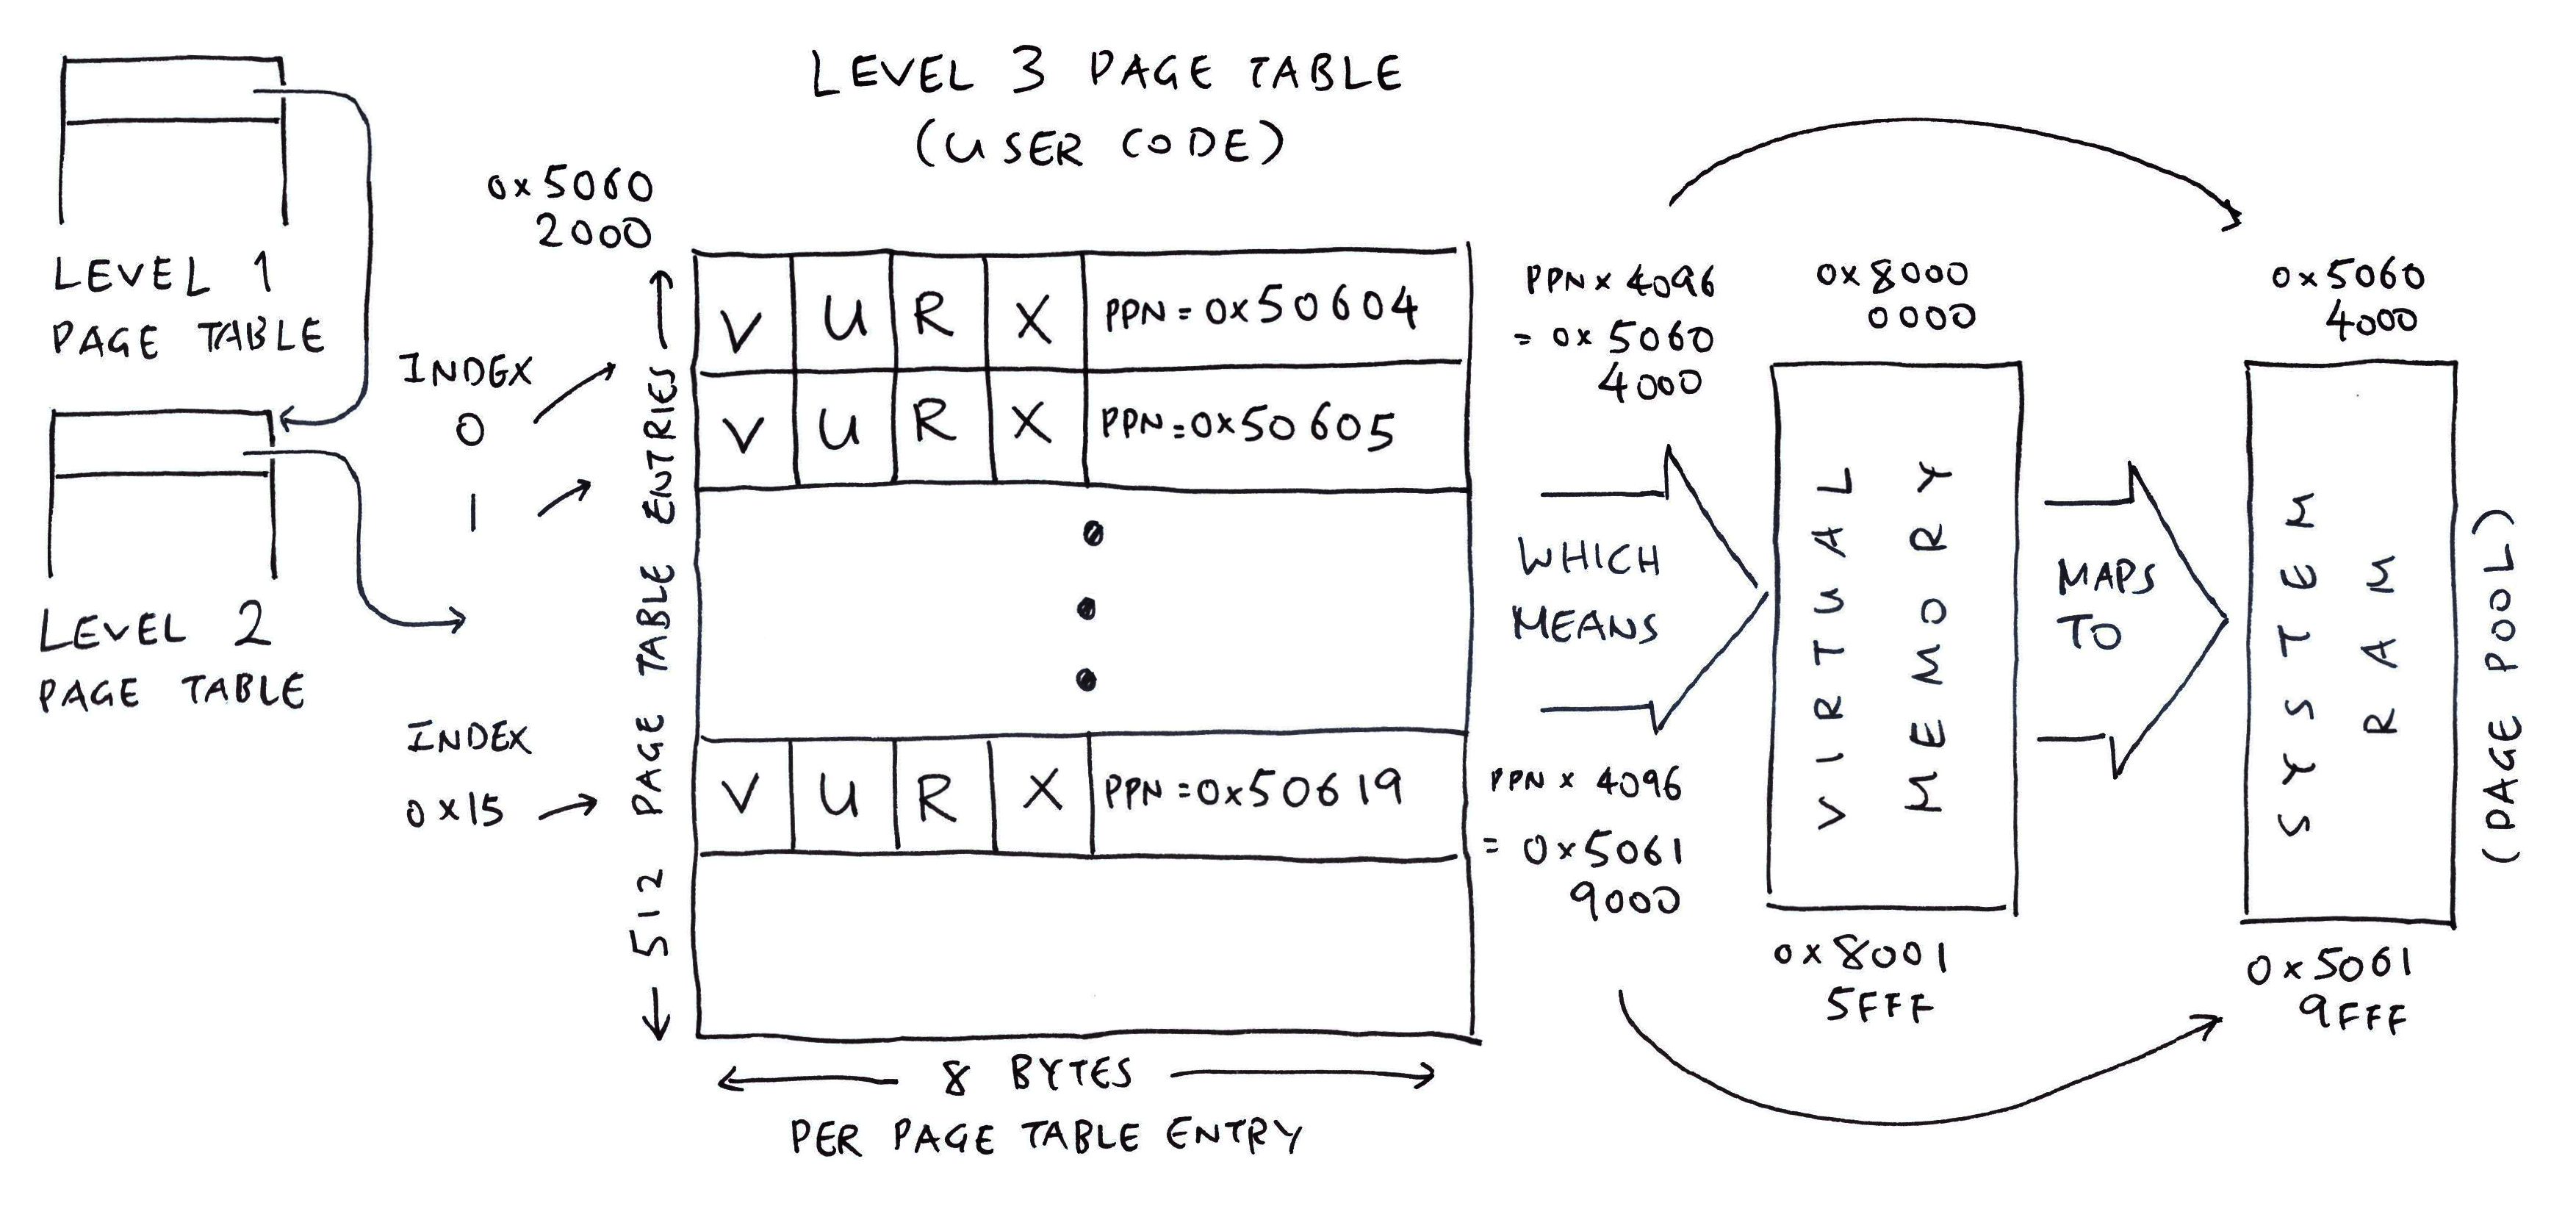 LEVEL 3 PAGE TABLE
(USER CODE)
LEVEL 1
PAGE TABLE
LEVEL 2
PAGE TABLE
0x5060
2000
INDEX
0
1
INDEX
0x15
512 PAGE TABLE ENTRIES
V U R X PPN = 0x50604
V U R X PPN = 0x50605
V U R X PPN = 0x50619
8 BYTES
PER PAGE TABLE ENTRY
PPN x 4096
= 0x5060
4000
WHICH
MEANS
PPN x 4096
= 0x5061
9000
0x8000
0000
VIRTUAL
MEMORY
0x8001
5FFF
MAPS
TO
0x5060
4000
SYSTEM
RAM
0x5061
9FFF
(PAGE POOL)